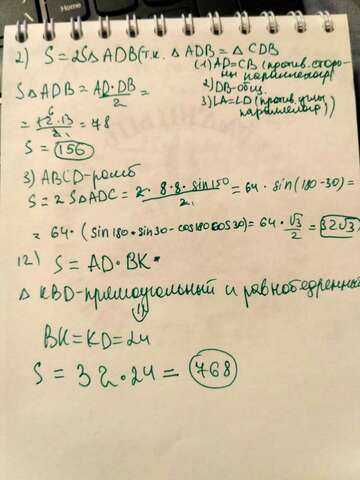 2) S = 2S△ADB (т.к. △ADB = △CDB
(1) AD=CB (против. сторо-
ны параллелогр)
2) DB-общ.
3) ∠A=∠D (против. углы
параллелогр))
S△ADB = AD·DB/2 =
= 12·13/2 = 78
S = 156
3) ABCD-ромб
S = 2S△ADC = 2·8·8·sin150/2 = 64·sin(180-30) =
= 64·(sin180·sin30-cos180cos30) = 64·√3/2 = 32√3
12) S = AD·BK
△KBD-прямоугольный и равнобедренный
⇓
BK=KD=24
S = 32·24 = 768